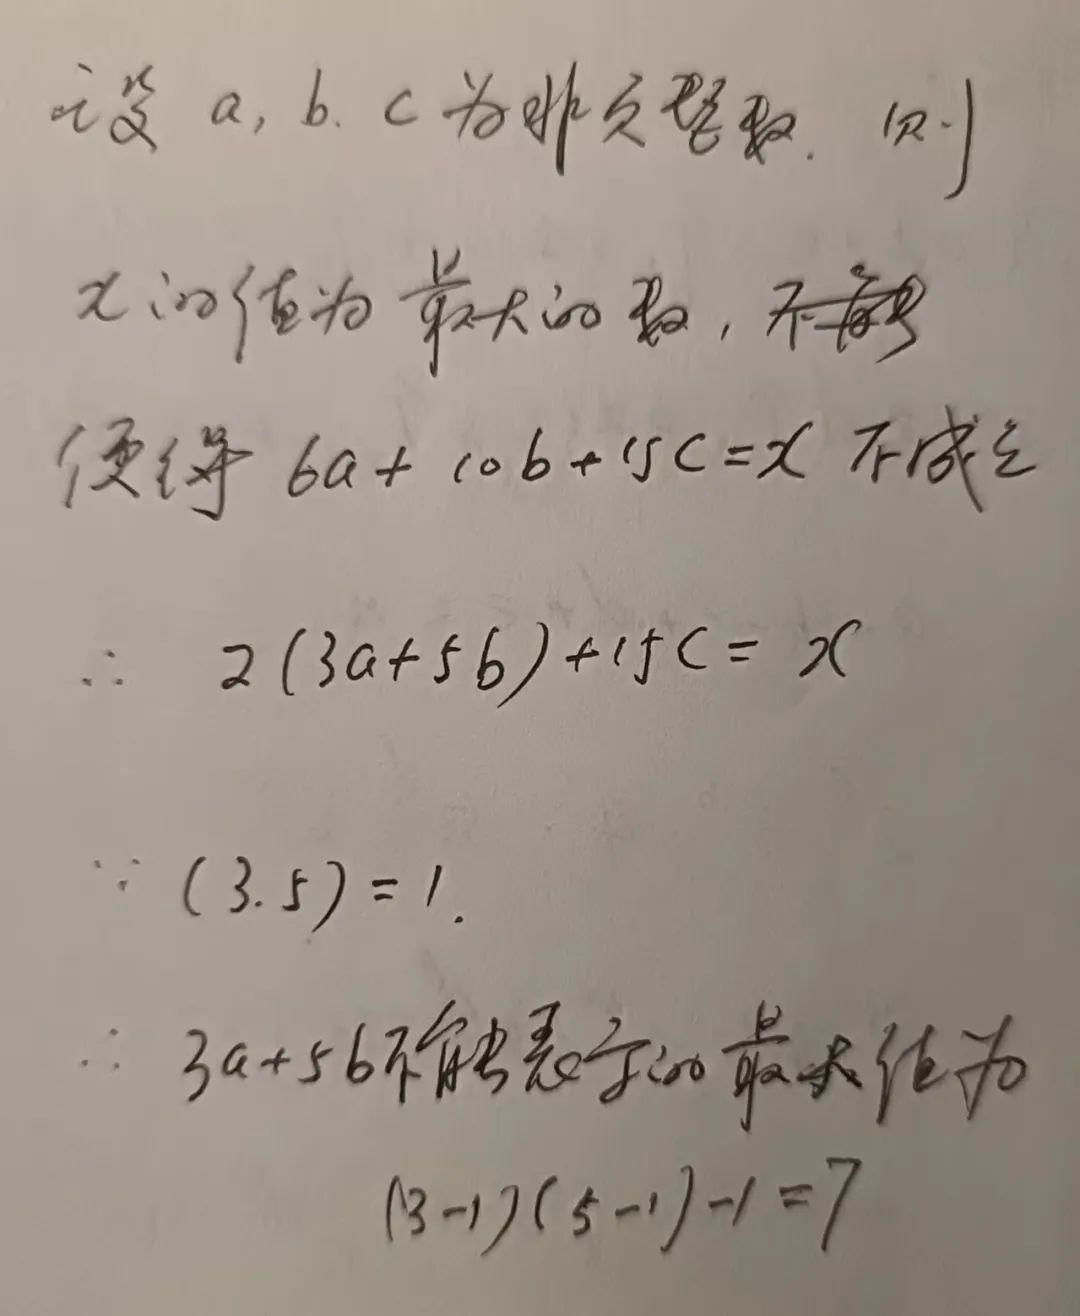 设 a, b. c 为非负整数. 则
x的值为最大的数,
使得 6a + 10b + 15c = x 不成立
∴ 2(3a+5b)+15c = x
∵ (3.5) = 1.
∴ 3a+5b不能表示的最大值为
(3-1)(5-1)-1=7